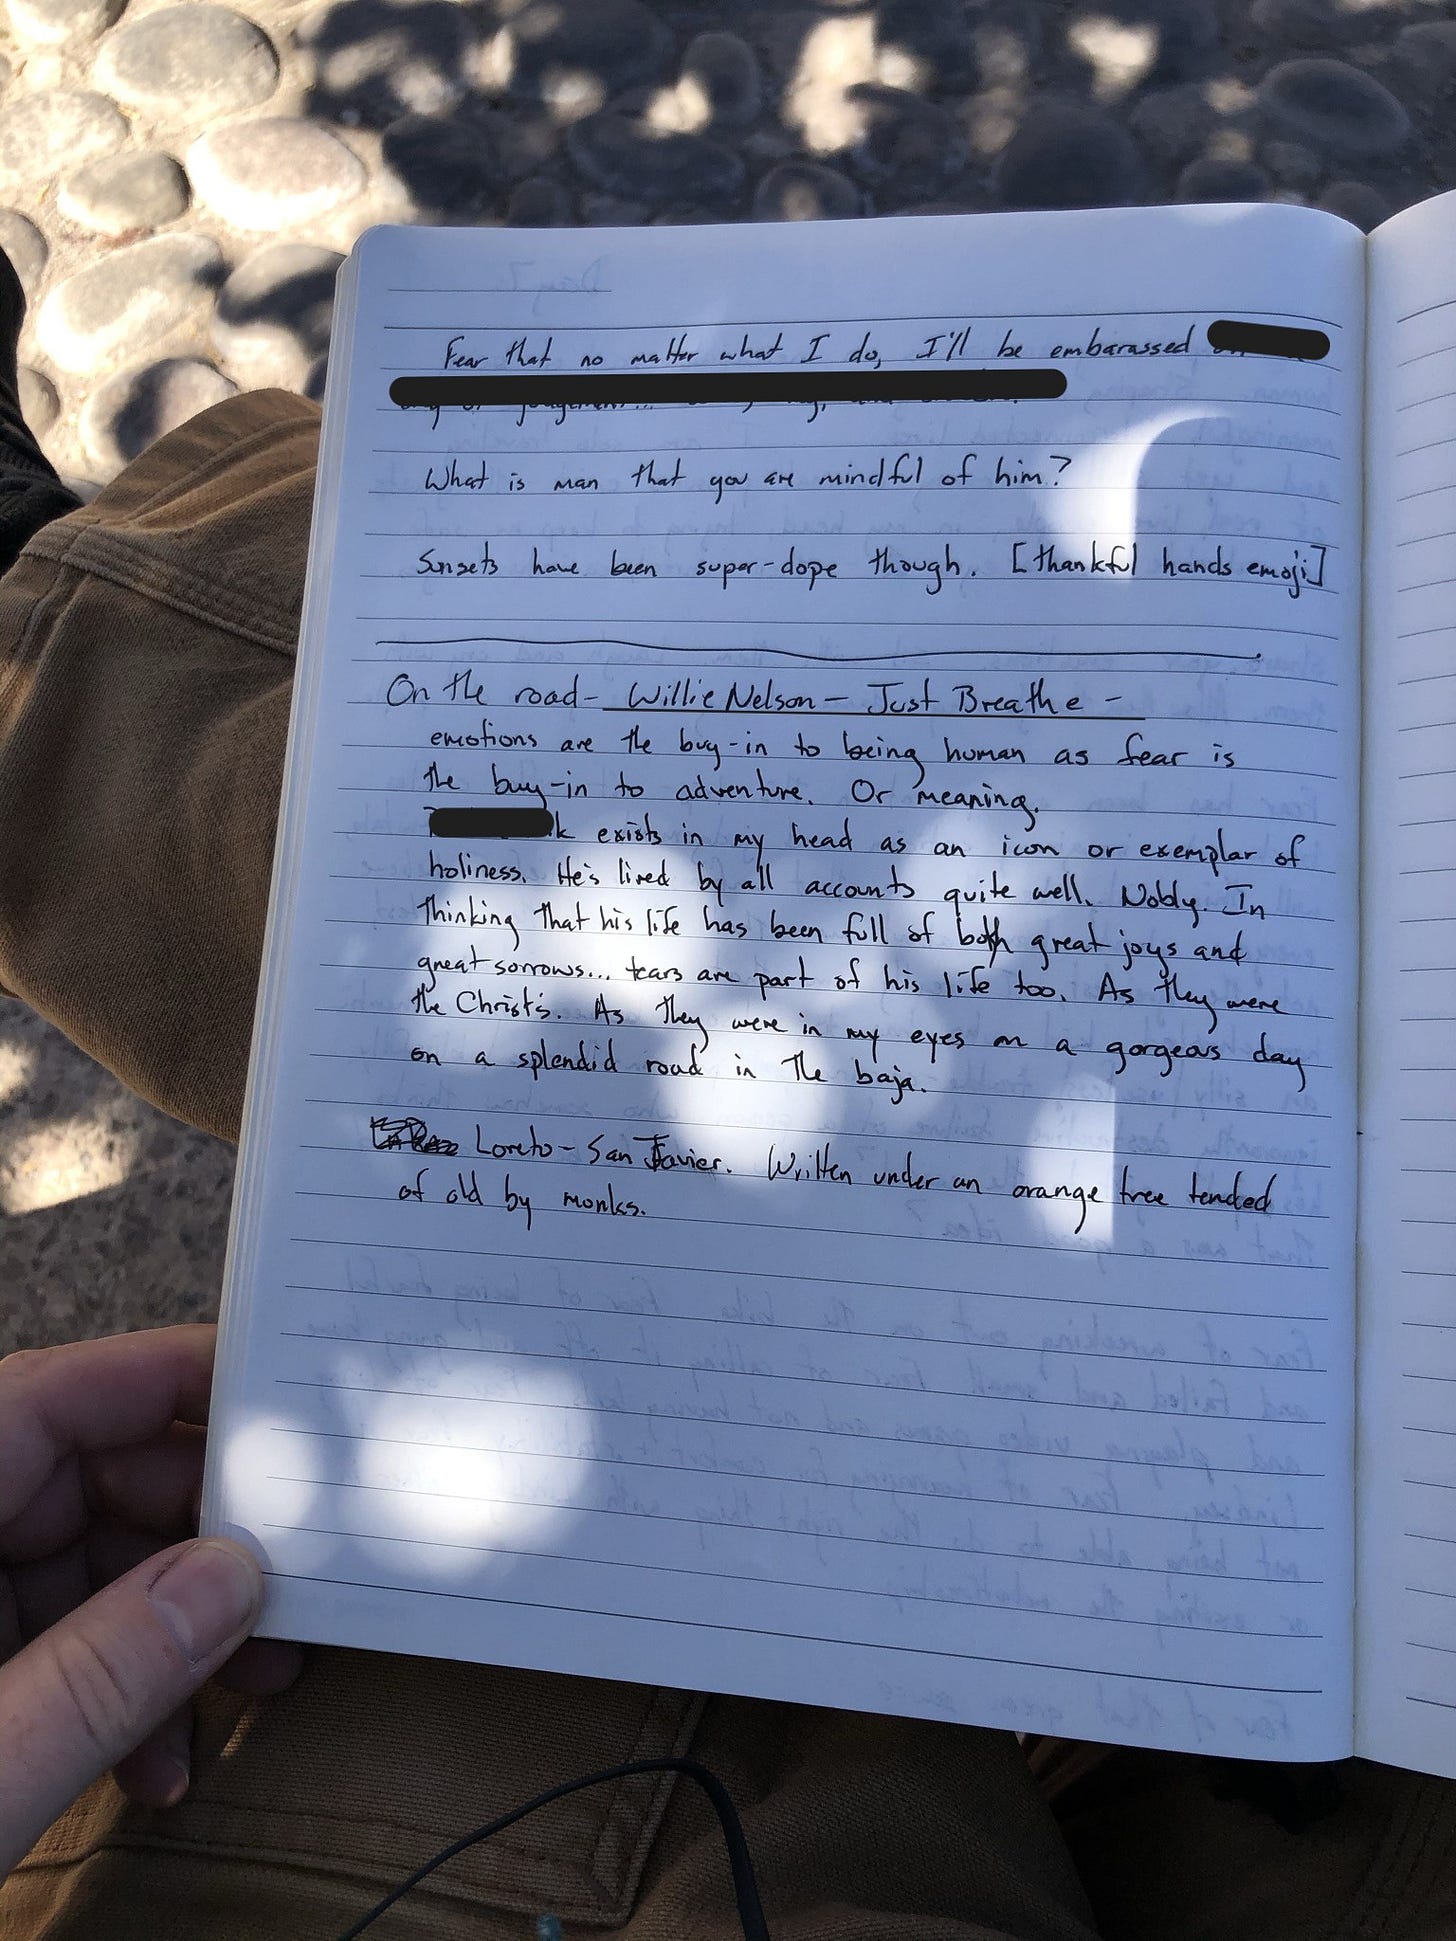 Fear that no matter what I do, I'll be embarassed
What is man that you are mindful of him?
Sunsets have been super-dope though. [thankful hands emoji]
On the road- Willie Nelson - Just Breathe -
emotions are the buy-in to being human as fear is
the buy-in to adventure. Or meaning.
k exists in my head as an icon or exemplar of
holiness. He's lived by all accounts quite well. Nobly. In
thinking that his life has been full of both great joys and
great sorrows... tears are part of his life too. As they were
the Christ's. As they were in my eyes on a gorgeous day
on a splendid road in the baja.
Loreto - San Javier. Written under an orange tree tended
of old by monks.